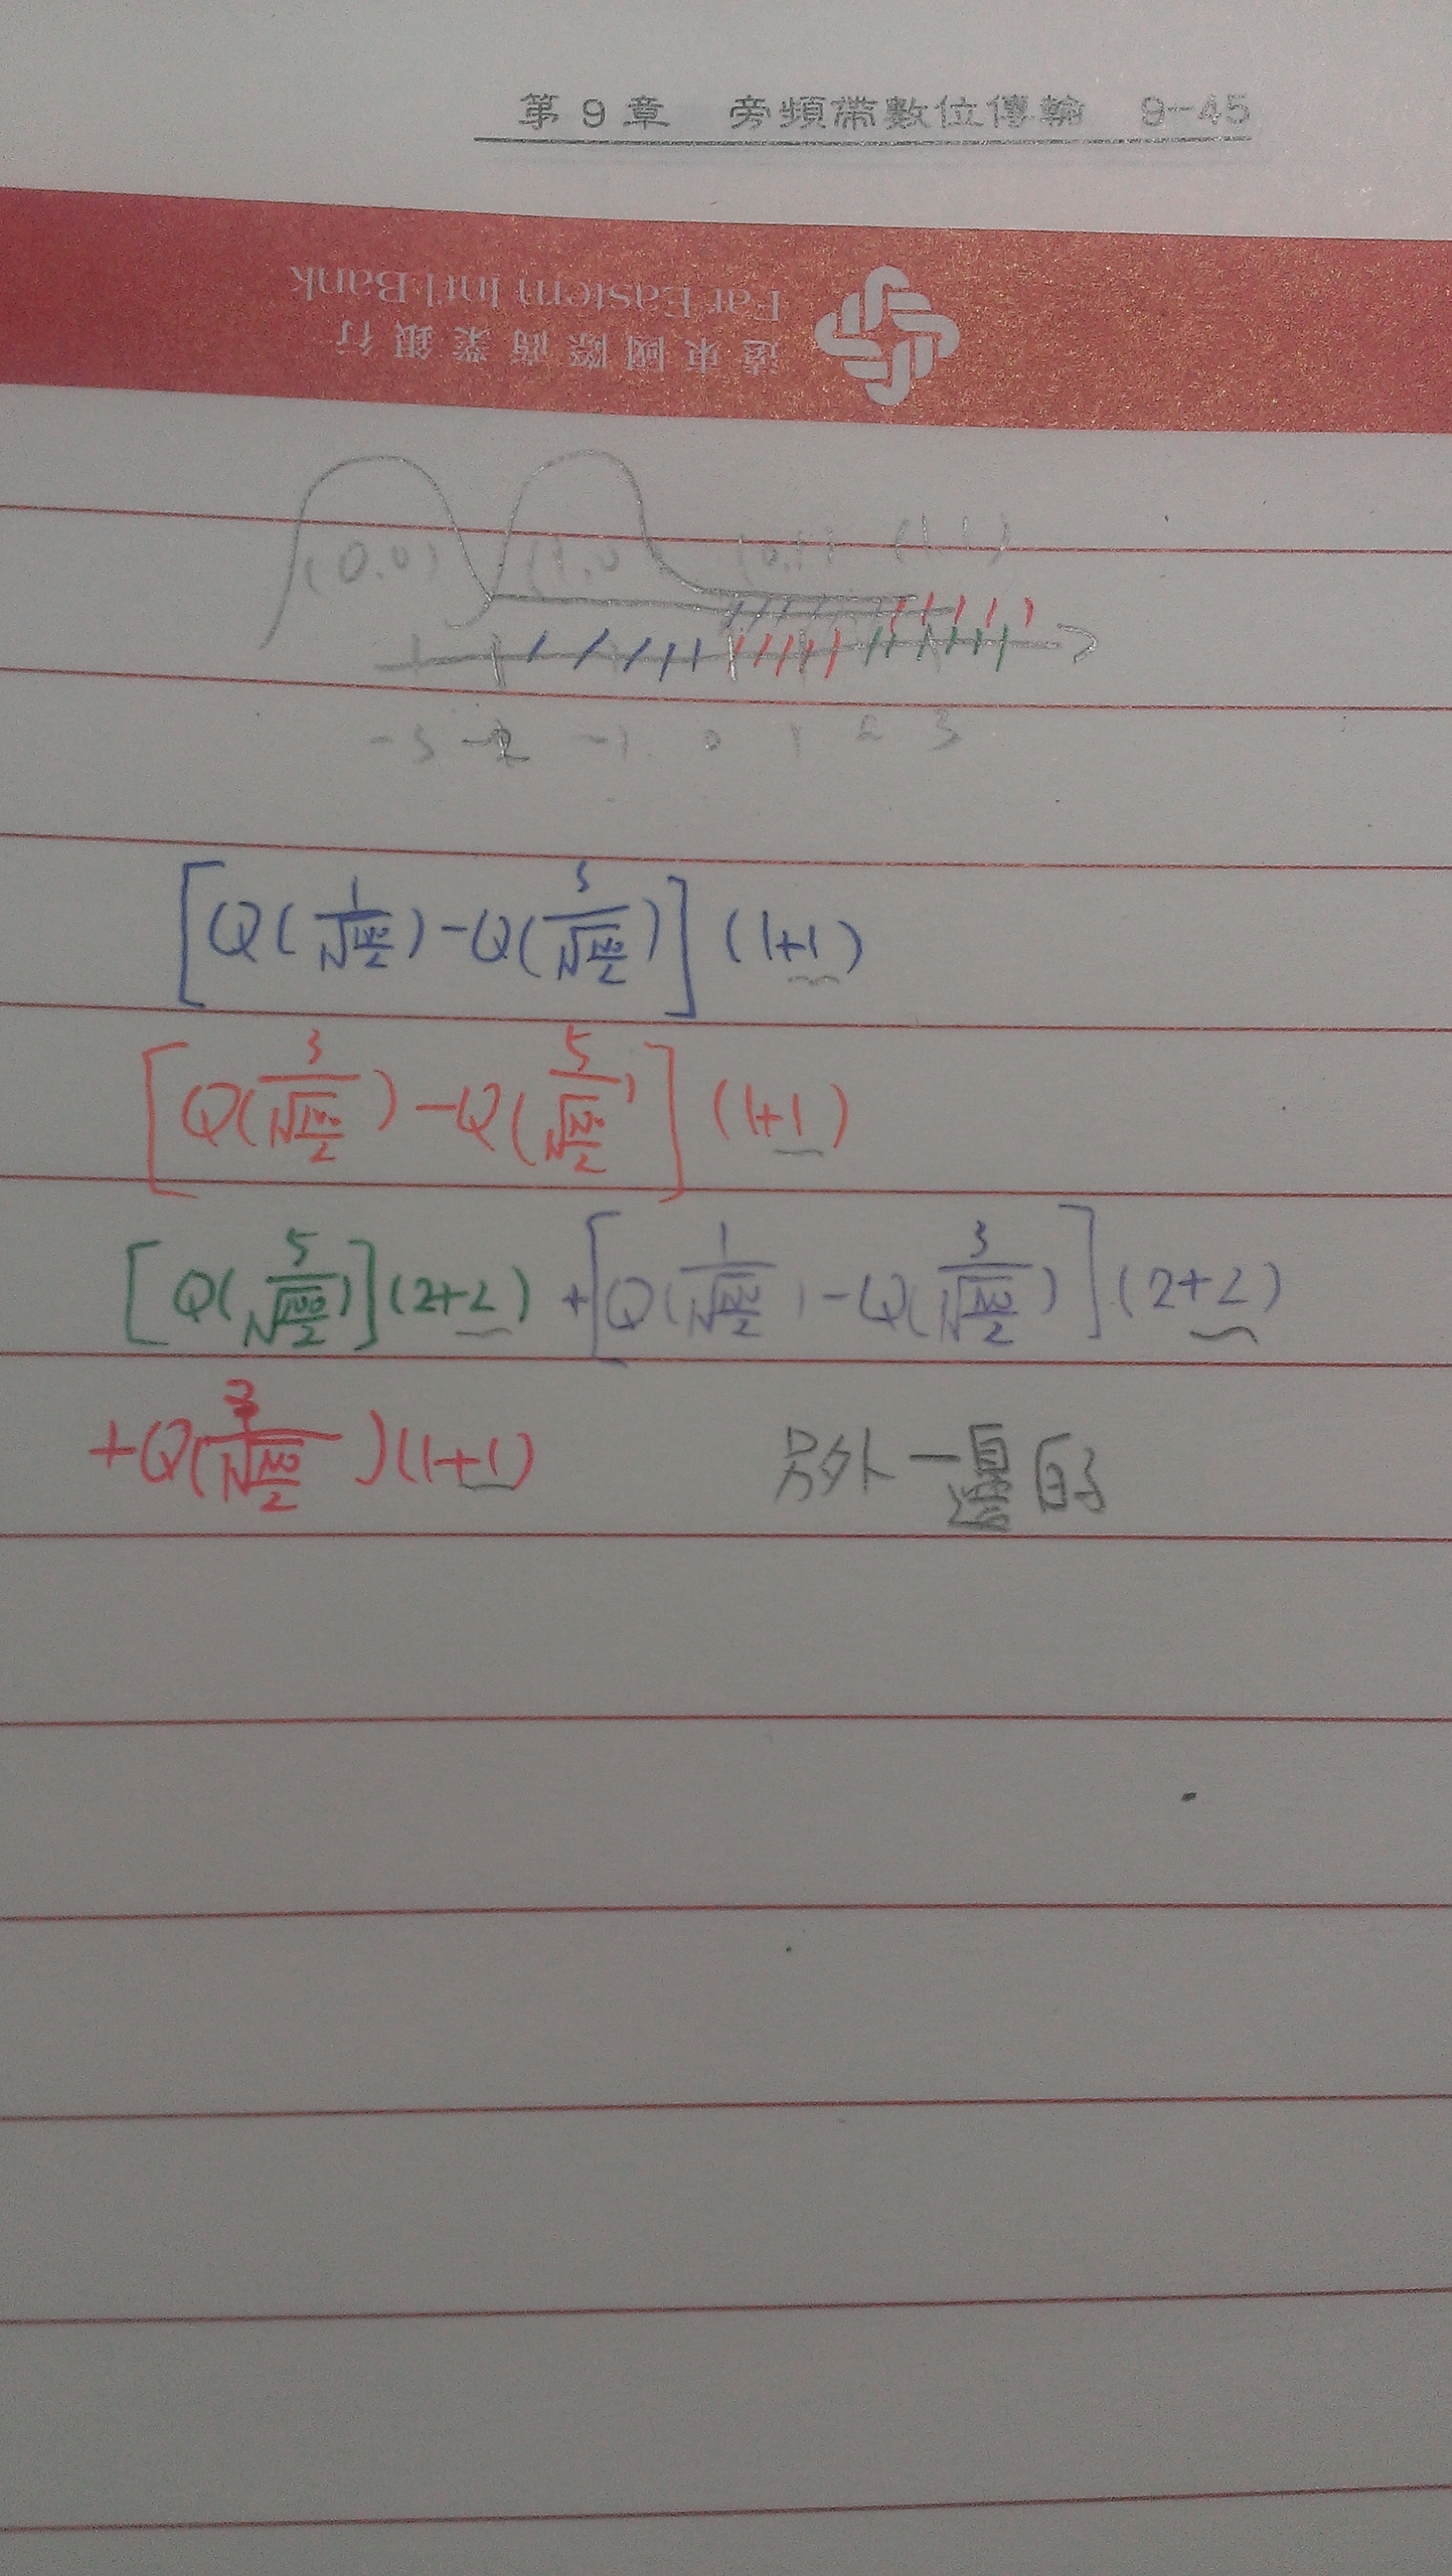 第 9 章 旁頻帶數位傳輸 9-45
遠東國際商業銀行
Far Eastern Int'l Bank
(0,0) (1,0) (0,1) (1,1)
-3 -2 -1 0 1 2 3
[Q(1/√(N₀/2)) - Q(3/√(N₀/2))] (1+1)
[Q(3/√(N₀/2)) - Q(5/√(N₀/2))] (1+1)
[Q(5/√(N₀/2))] (2+2) + [Q(1/√(N₀/2)) - Q(3/√(N₀/2))] (2+2)
+Q(3/√(N₀/2)) (1+1) 另外一邊的